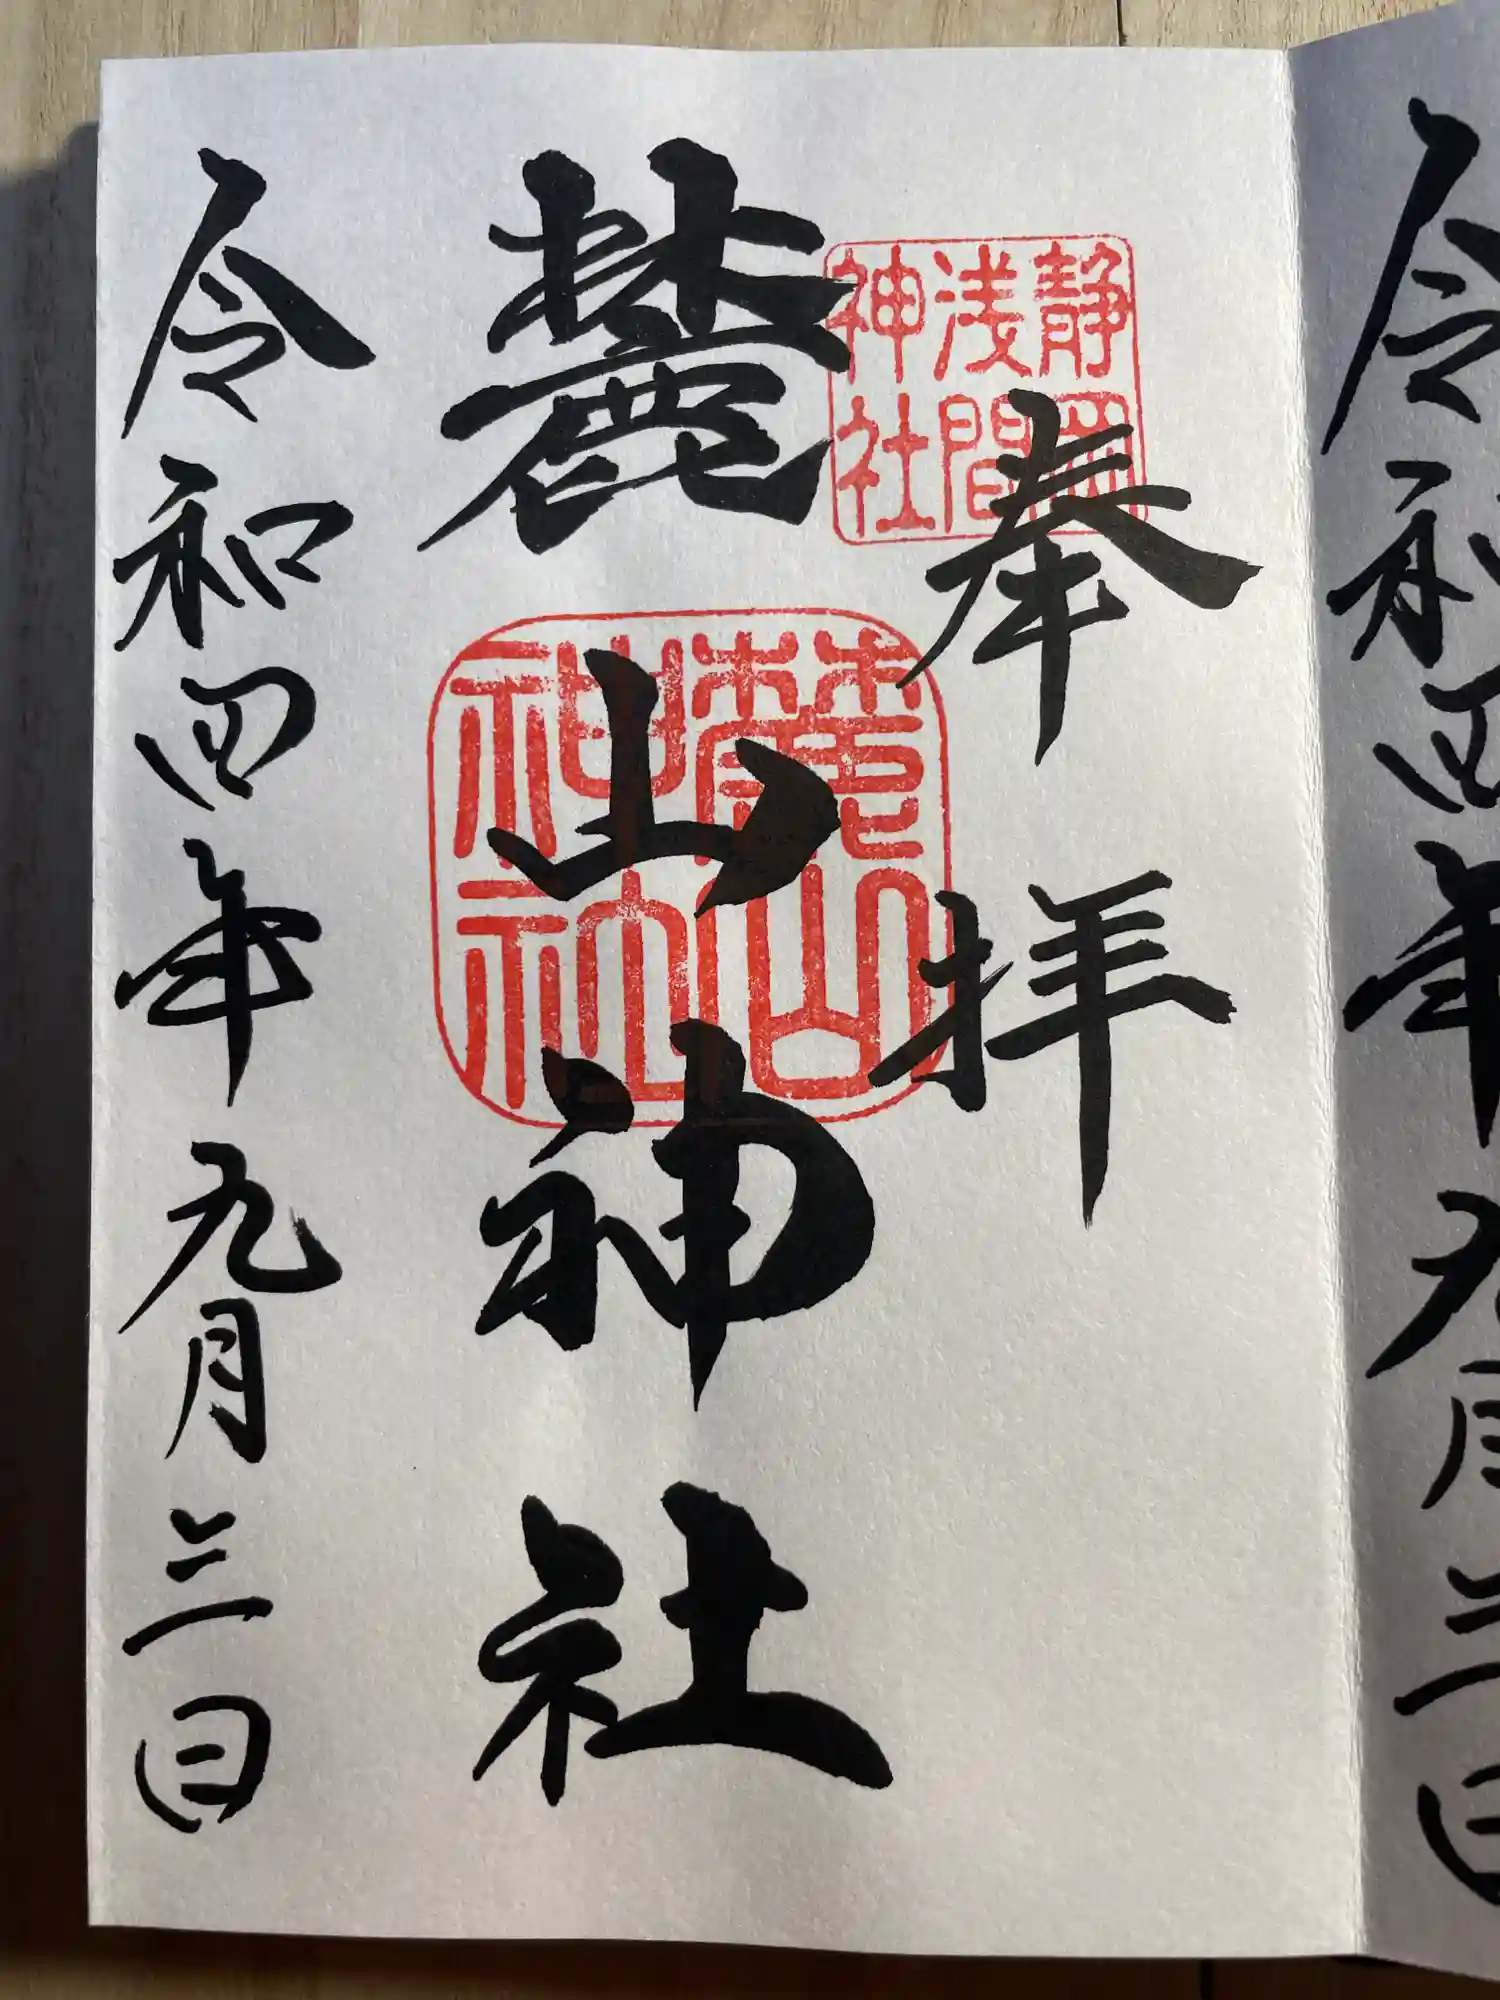 奉拝
静岡
浅間
神社
麓山神社
麓山
神社
令和四年九月三日
令和四年九月三日